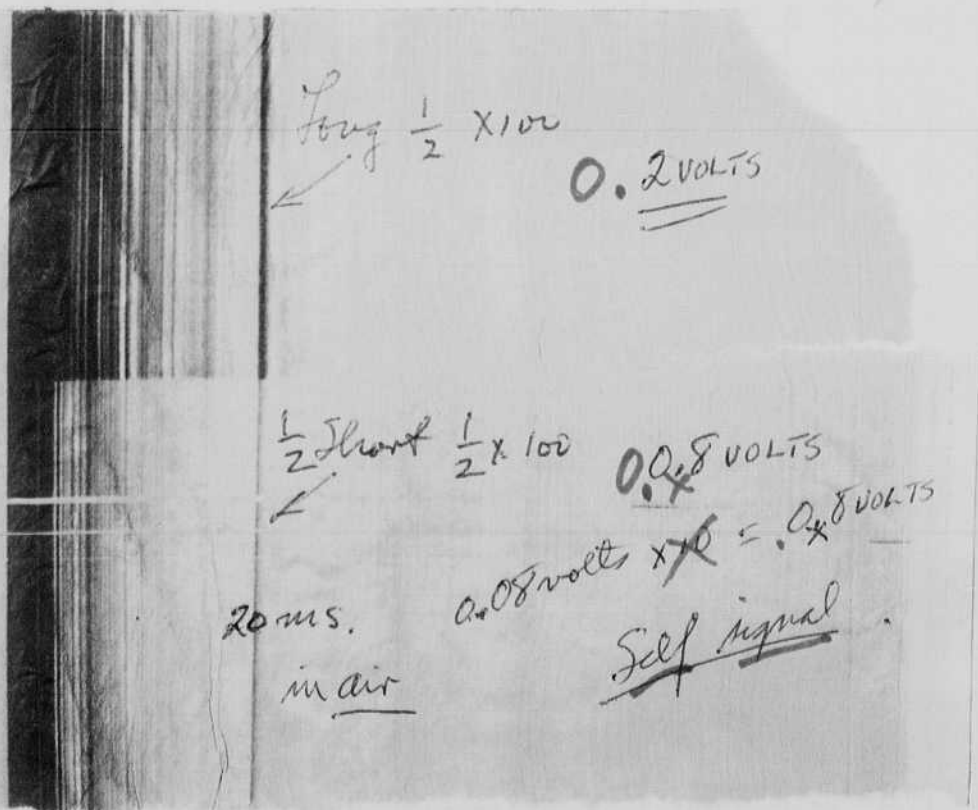 Long 1/2 X100
0.2 VOLTS
1/2 Short 1/2 X 100
0.0.8 VOLTS
0.08 volts x10 = .0.8 VOLTS
20 ms.
in air
Self signal